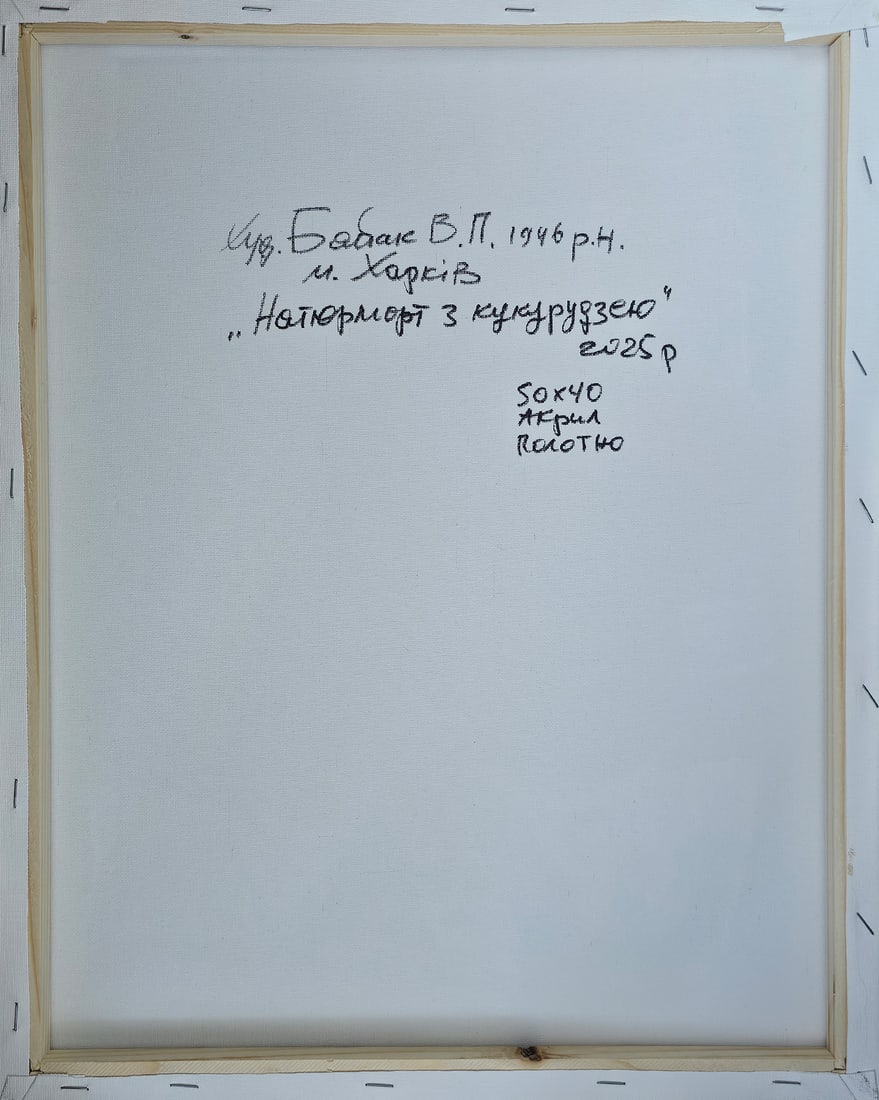 Худ. Бабак В.П. 1946 р.н.
м. Харків
„Натюрморт з кукурудзею"
2025р
50х40
Акрил
Полотно